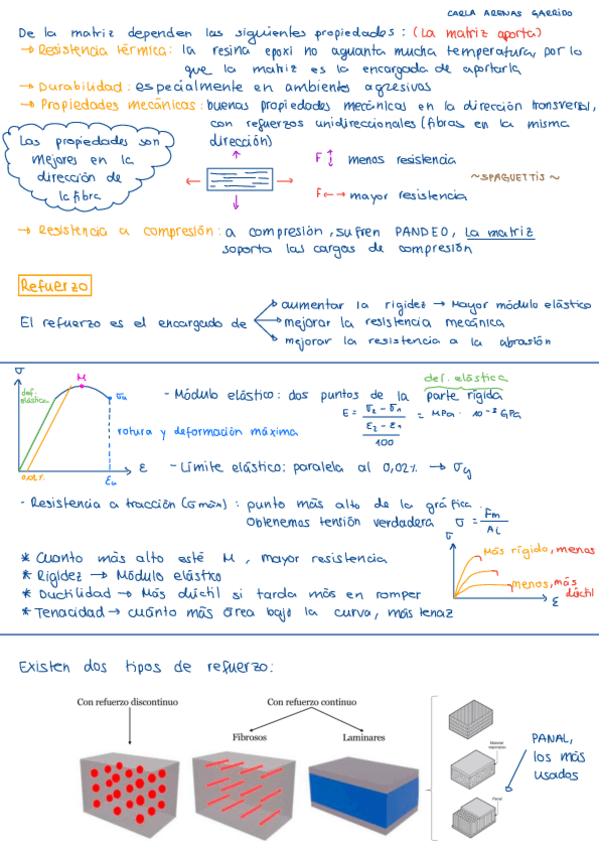 CARLA ARENAS GARRIDO
De la matriz dependen las siguientes propiedades: (La matriz aporta)
→ Resistencia térmica: la resina epoxi no aguanta mucha temperatura, por lo
que la matriz es la encargada de aportarla
→ Durabilidad: especialmente en ambientes agresivos
→ Propiedades mecánicas: buenas propiedades mecánicas en la dirección transversal,
con refuerzos unidireccionales (fibras en la misma
dirección)
Las propiedades son
mejores en la
dirección de
la fibra
F ↕ menos resistencia
~SPAGUETTIS~
F ←→ mayor resistencia
→ Resistencia a compresión: a compresión, sufren PANDEO, la matriz
soporta las cargas de compresión
Refuerzo
El refuerzo es el encargado de
aumentar la rigidez → Mayor módulo elástico
mejorar la resistencia mecánica
mejorar la resistencia a la abrasión
σ
M
def. elástica
σu
rotura y deformación máxima
0,02%
εu
ε
def. elástica
- Módulo elástico: dos puntos de la parte rígida
E = (σ2 - σ1) / ((ε2 - ε1) / 100) = MPa · 10⁻³ GPa
- Límite elástico: paralela al 0,02% → σy
- Resistencia a tracción (σmáx): punto más alto de la gráfica.
Obtenemos tensión verdadera σ = Fm / AL
* Cuanto más alto esté M, mayor resistencia
* Rigidez → Módulo elástico
* Ductilidad → Más dúctil si tarda más en romper
* Tenacidad → cuánto más área bajo la curva, más tenaz
σ
Más rígido, menos
menos, más
dúctil
ε
Existen dos tipos de refuerzo:
Con refuerzo discontinuo
Con refuerzo continuo
Fibrosos
Laminares
Panal
PANAL,
los más
usados